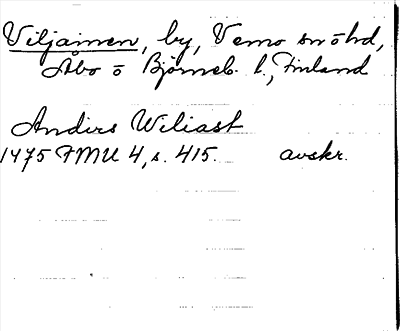 Viljainen, by, Vemo sn o hd,
Åbo o Björneb. l., Finland
Andirs Weliast
1475 FMU 4, s. 415. avskr.